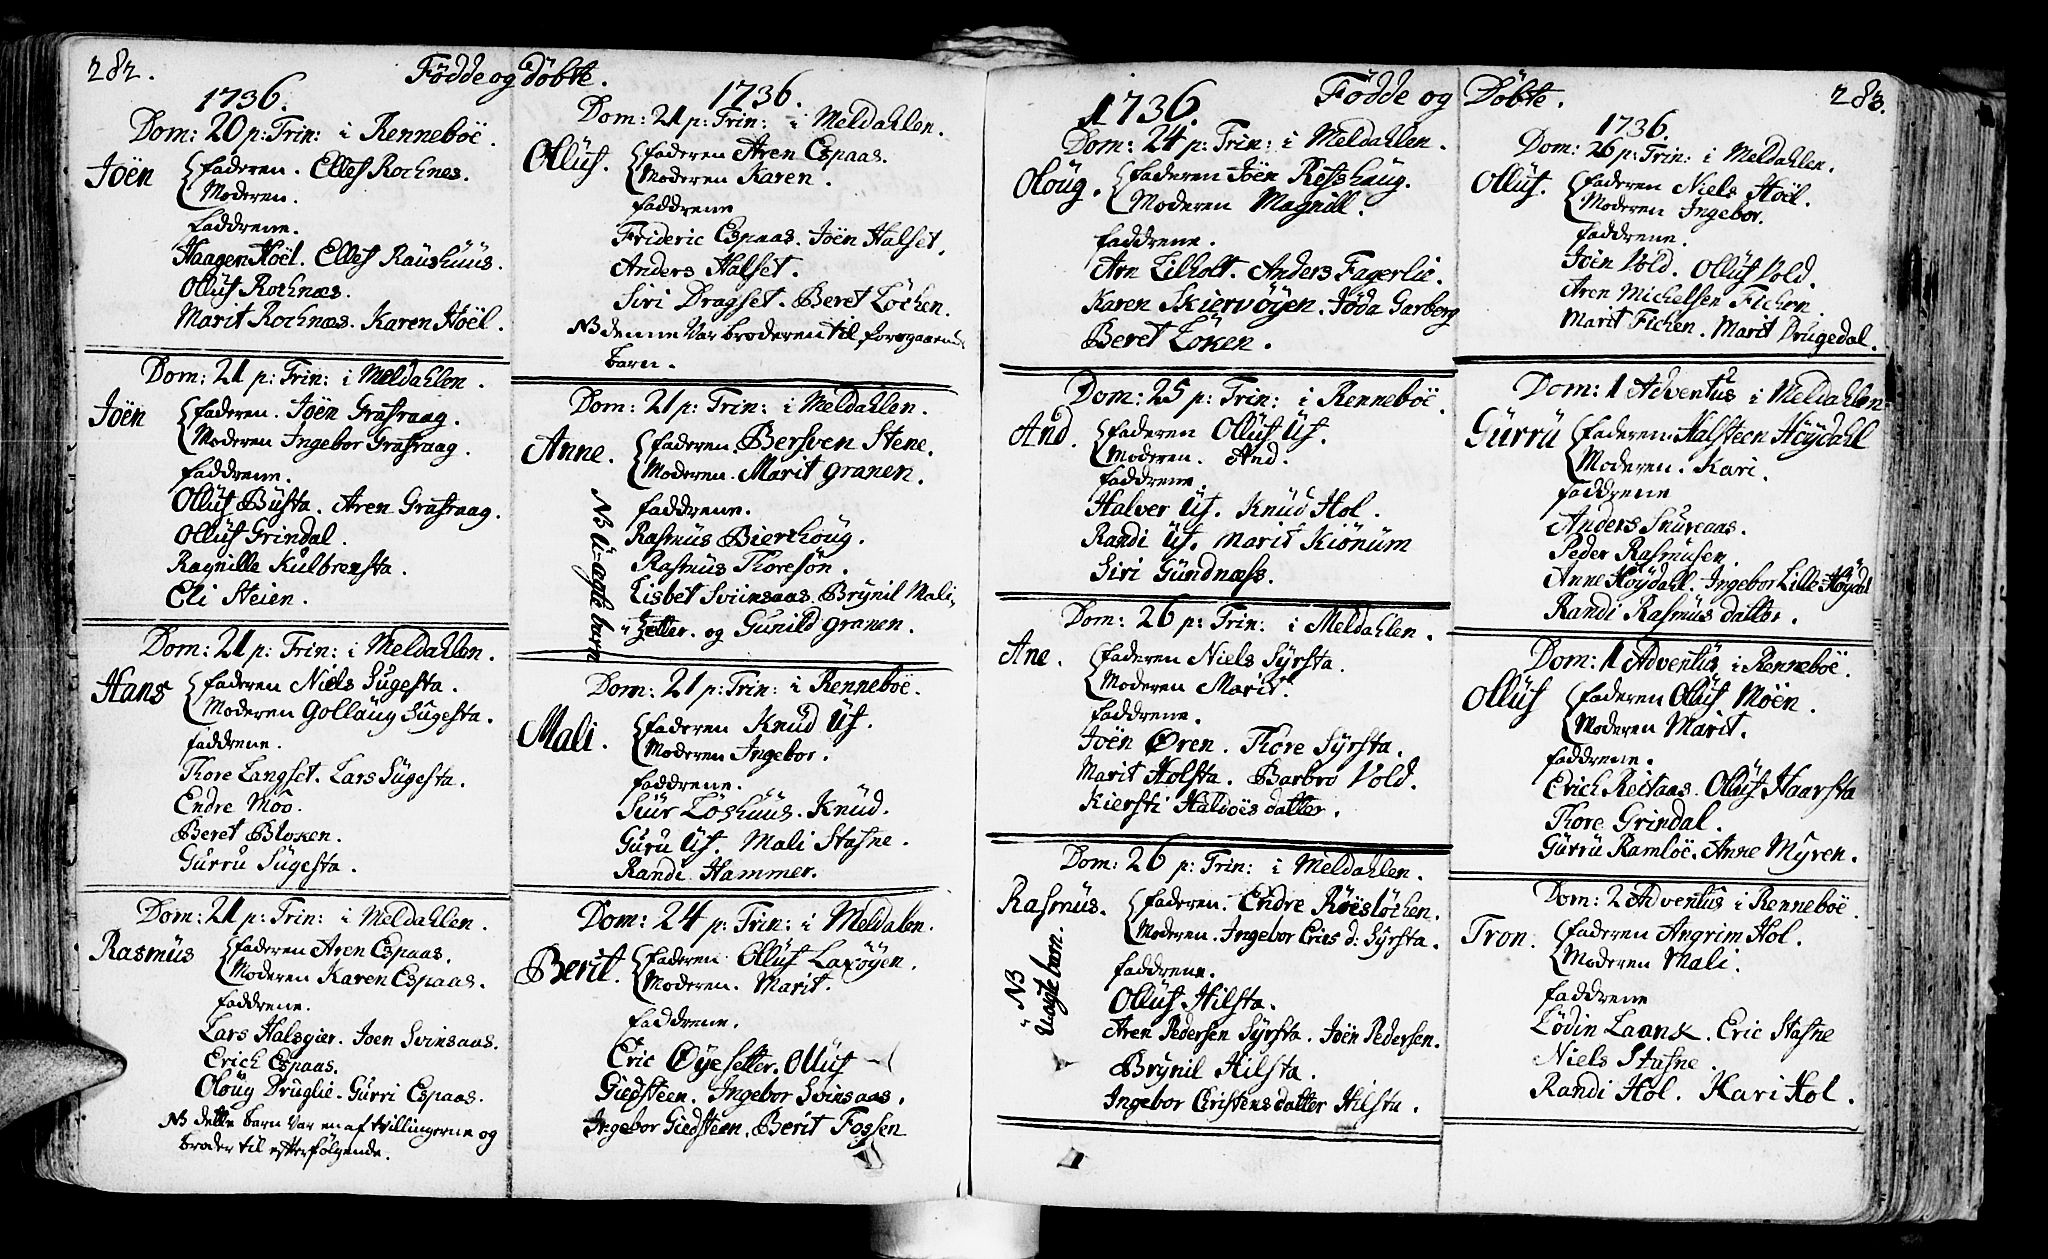 282.
Fødde og døbte.
1736.
Dom: 20 p: Trin: i Renneboe.
Joën
faderen. Ellef Rochnes.
Moderen.
faddrene.
Haagen Hoël. Ellef Raushuus.
Olluf Rochnæs.
Marit Rochnæs. Karen Hoël.
Dom: 21 p: Trin: i Meldahlen.
Joën
faderen. Joën Grafraag.
Moderen Ingebor Grafraag.
faddrene.
Olluf Busta. Aren Grafraag.
Olluf Grindal.
Ragnille Kulbrensta.
Eli Steien.
Dom: 21 p: Trin: i Meldahlen.
Hans
faderen Niels Sugesta.
Moderen Gollaug Sugesta.
faddrene.
Thore Langset. Lars Sugesta.
Endre Moo.
Beret Bloken.
Gurru Sugesta.
Dom: 21 p: Trin: i Meldahlen.
Rasmus
faderen Aren Espaas.
Moderen Karen Espaas.
faddrene.
Lars Halsgier. Joen Svinsaas.
Erich Espaas.
Oloug Druglie. Gurri Espaas.
NB dette barn var en af tvillingerne og
broder til efterfølgende.
1736.
Dom: 21 p: Trin: i Meldahlen.
Olluf.
faderen Aren Espaas.
Moderen Karen.
faddrene
Frideric Espaas. Joën Halset.
Anders Halset.
Siri Dragset. Beret Løchen.
NB denne var broderen til foregaaende
barn.
Dom: 21 p: Trin: i Meldahlen.
Anne.
faderen. Bersven Stene.
Moderen. Marit granen.
NB U-ægte barn
faddrene.
Rasmus Bierchoug.
Rasmus Thoresøn.
Lisbet Sviinsaas. Brynil Mali-
Zetter. og Gunild granen.
Dom: 21 p: Trin: i Renneboe.
Mali.
faderen Knud Uf.
Moderen Ingebor.
faddrene.
Siur Loshuus. Knud.
Guru Uf. Mali Stafne.
Randi Hammer.
Dom: 24 p: Trin: i Meldalen.
Berit.
faderen Olluf Laxøyen.
Moderen. Marit.
faddrene.
Eric Øyesetter. Olluf
Giedsteen. Ingebor Svinsaas.
Ingebor Giedsteen. Berit Fossen
Fødde og Døbte.
283.
1736.
Dom: 24 p: Trin: i Meldahlen.
Oloug.
faderen Joën Resshaug.
Moderen Magnill.
faddrene.
Arn Lilholt. Anders Fagerlie.
Karen Skiervøyen. Joda Garberg
Beret Løken.
Dom: 25 p: Trin: i Renneboë.
And.
faderen Olluf Uf.
Moderen. And.
faddrene.
Halver Uf. Knud Hol.
Randi Uf. Marit Kiønum
Siri Gundnæss.
Dom: 26 p: Trin: i Meldahlen.
Ane.
faderen Niels Syrsta.
Moderen Marit.
faddrene.
Joën Øren. Thore Syrsta.
Marit Holsta. Barbro Vold.
Kiersti Haldoës datter.
Dom: 26 p: Trin: i Meldahlen.
Rasmus.
faderen. Endre Røesløchen.
Moderen. Ingebor Erics d: Syrsta.
NB Uægte barn.
faddrene.
Olluf Hilsta.
Aren Pedersen Syrsta. Joën Pedersen.
Brynil Hilsta.
Ingebor Christensdatter Hilsta.
1736.
Dom: 26 p: Trin: i Meldahlen.
Olluf.
faderen Niels Hoël.
Moderen Ingebor.
faddrene.
Joën Vold. Olluf Vold.
Aren Michelsen Fichen.
Marit Fichen. Marit Drugedal.
Dom: 1 Adventus i Meldahlen
Gurru
faderen. Halsteen Høydahl
Moderen. Kari.
faddrene
Anders Snureaas.
Peder Rasmusen.
Anne Høydahl. Ingebor Lille-Høydal
Randi Rasmus datter.
Dom: 1 Adventus i Renneboë.
Olluf
faderen Olluf Moën.
Moderen Marit.
faddrene.
Erich Reitaas. Olluf Haarsta
Thore Grindal.
Gurru Ramloë. Anne Myren.
Dom: 2 Adventus i Renneboë.
Tron.
faderen Angrim Hol.
Moderen Mali.
faddrene
Lødin Laank. Eric Stafne
Niels Stafne.
Randi Hol. Kari Hol.